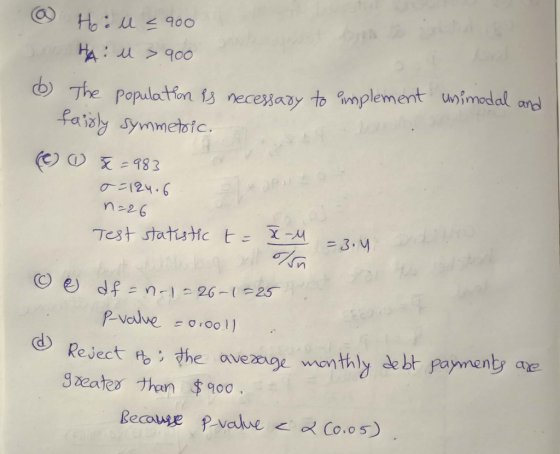 (a) H₀ : μ ≤ 900
HA : μ > 900
(b) The population is necessary to implement unimodal and
fairly symmetric.
(c) (1) x̄ = 983
σ = 124.6
n = 26
Test statistic t = x̄ - μ / σ/√n = 3.4
(c) (2) df = n-1 = 26-1 = 25
P-value = 0.0011
(d) Reject H₀ ; the average monthly debt payments are
greater than $900.
Because P-value < α (0.05)